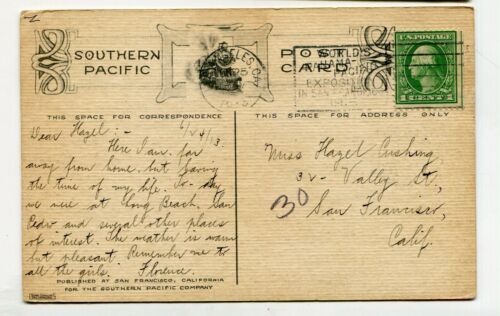 SOUTHERN
PACIFIC
POST
CARD
U.S. POSTAGE
1 CENT 1
WORLD'S
PANAMA-
EXPOSIT
IN SAN
THIS SPACE FOR CORRESPONDENCE
THIS SPACE FOR ADDRESS ONLY
Dear Hazel:- 6/24/13.
Here I am far
away from home but having
the time of my life. To-day
we were at Long Beach, San
Pedro and several other places
of interest. The weather is warm
but pleasant. Remember me to
all the girls. Florence.
Miss Hazel Cushing
32 - Valley St.,
San Francisco,
Calif.
30
PUBLISHED AT SAN FRANCISCO, CALIFORNIA
FOR THE SOUTHERN PACIFIC COMPANY